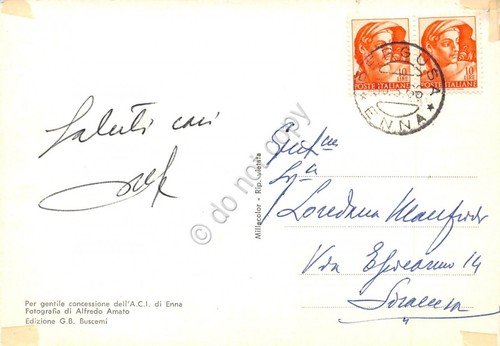 POSTE ITALIANE
10 LIRE
POSTE ITALIANE
10 LIRE
PERGUSA
* ENNA *
Saluti cari
Millecolor - Rip. vietata
do not copy
Loredana Manfredi
Via Epicarmo 14
Siracusa
Per gentile concessione dell'A.C.I. di Enna
Fotografia di Alfredo Amato
Edizione G.B. Buscemi